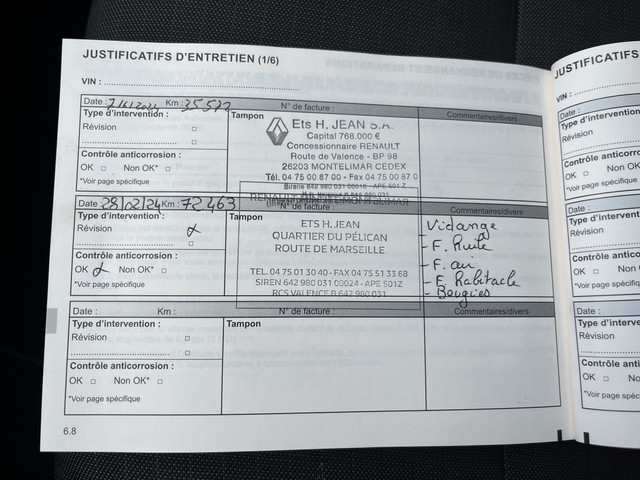 JUSTIFICATIFS D'ENTRETIEN (1/6)
VIN :
Date : Km : 35 577 N° de facture :
Commentaires/divers
Type d'intervention :
Révision
Tampon
Ets H. JEAN S.A.
Capital 768.000 €
Concessionnaire RENAULT
Route de Valence - BP 98
26103 MONTELIMAR CEDEX
Tél. 04 75 00 87 00 - Fax 04 75 00 87 0
Sirene 642 980 031 00016 - APE 501Z
Contrôle anticorrosion :
OK Non OK* :
*Voir page spécifique
Date : 28/02/24 Km : 72 463 N° de facture :
Commentaires/divers
Type d'intervention :
Révision
Tampon
ETS H. JEAN
QUARTIER DU PÉLICAN
ROUTE DE MARSEILLE
TEL. 04 75 01 30 40 - FAX 04 75 51 33 68
SIREN 642 980 031 00024 - APE 501Z
RCS VALENCE B 642 980 031
Vidange
- F. Huile
- F. air
- F. Habitacle
- Bougies
Contrôle anticorrosion :
OK Non OK* :
*Voir page spécifique
Date : Km : N° de facture :
Commentaires/divers
Type d'intervention :
Révision
Tampon
Contrôle anticorrosion :
OK Non OK* :
*Voir page spécifique
6.8
JUSTIFICATIFS
VIN :
Date :
Type d'intervention
Révision
Contrôle
OK
*Voir page spécifique
Date :
Type d'intervention
Révision
Contrôle
OK
*Voir page spécifique
Date :
Type d'interve
Révision
Contrôle
OK
*Voir page spécifi